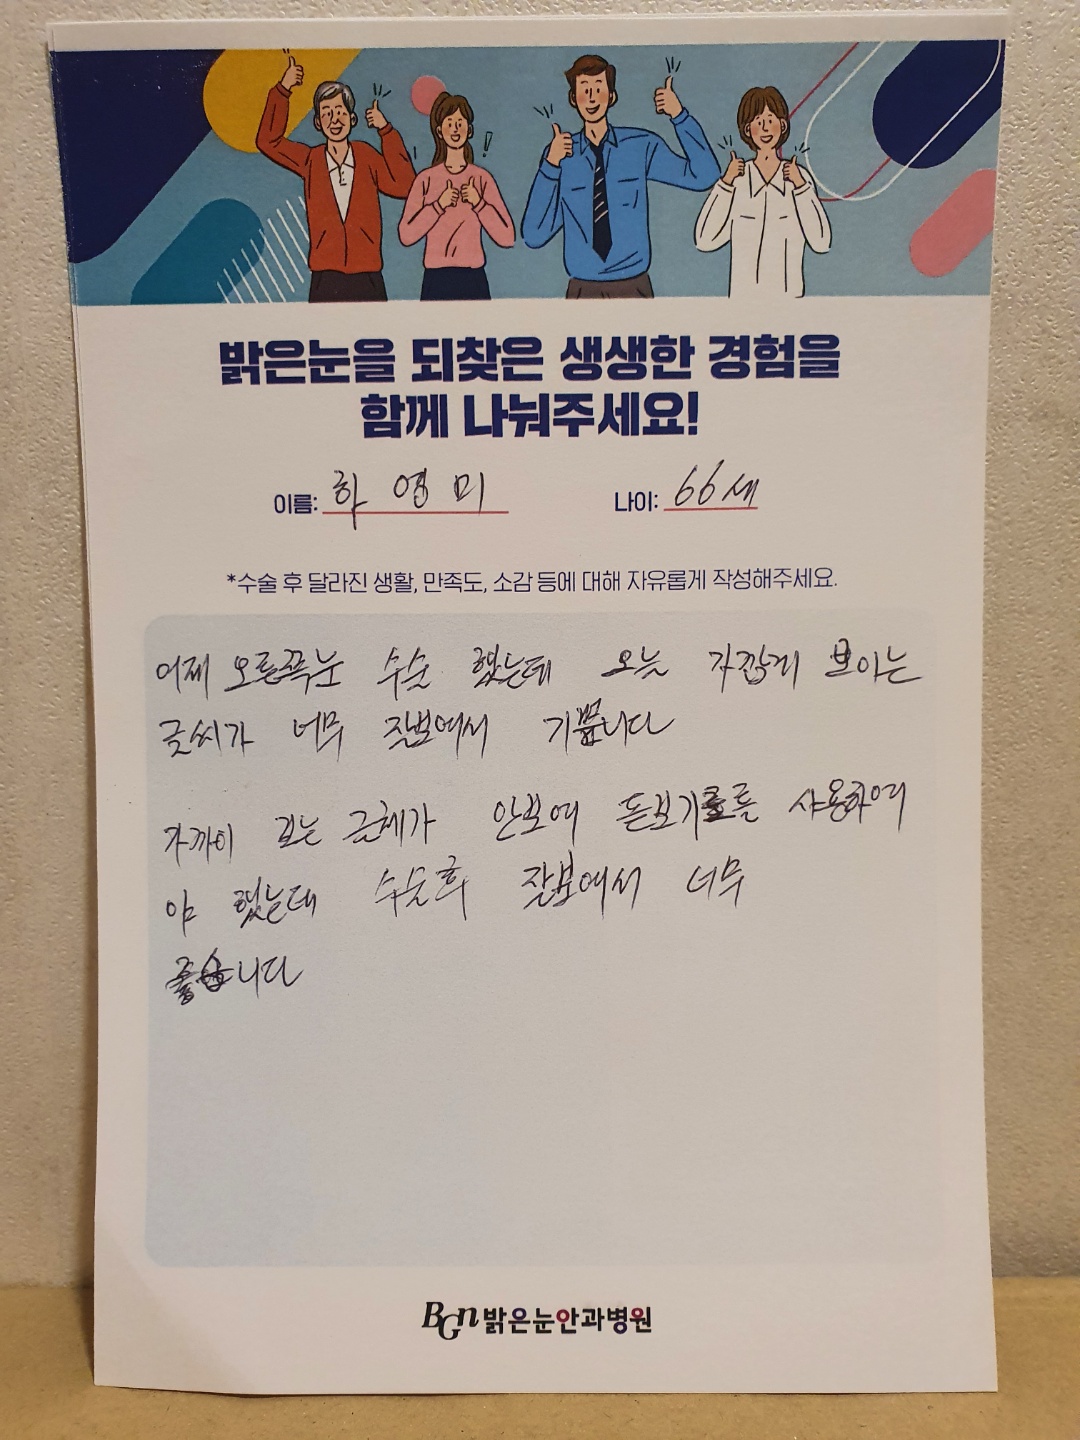 밝은눈을 되찾은 생생한 경험을
함께 나눠주세요!
이름: 하영미 나이: 66세
*수술 후 달라진 생활, 만족도, 소감 등에 대해 자유롭게 작성해주세요.
어제 오른쪽눈 수술 했는데 오늘 가깝게 보이는
글씨가 너무 잘보여서 기쁩니다
가까이 보는 글체가 안보여 돋보기를 사용하여
야 했는데 수술후 잘보여서 너무
좋습니다
BGn 밝은눈안과병원